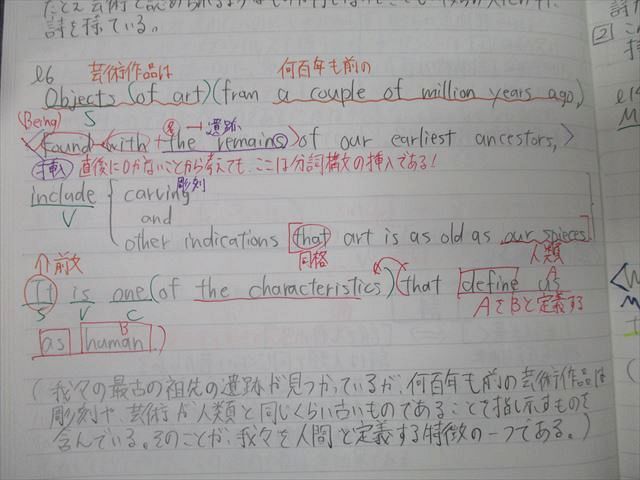 詩を採ている。
l6 芸術作品は 何百年も前の
Objects (of art) (from a couple of million years ago,)
S
(Being) ⑧ → 遺跡
<found with + the remains) of our earliest ancestors,>
挿入 直後にOがないことから考えても、ここは分詞構文の挿入である!
include { carving 彫刻
V and
other indications [that art is as old as our spieces]
同格 人類
↑前文
It is one (of the characteristics) (that define us
S V C A AをBと定義する
B
as human.)
(我々の最古の祖先の遺跡が見つかっているが、何百年も前の芸術作品は
彫刻や、芸術が人類と同じくらい古いものであることを指し示すものを
含んでいる。そのことが、我々を人間と定義する特徴の一つである。)
2